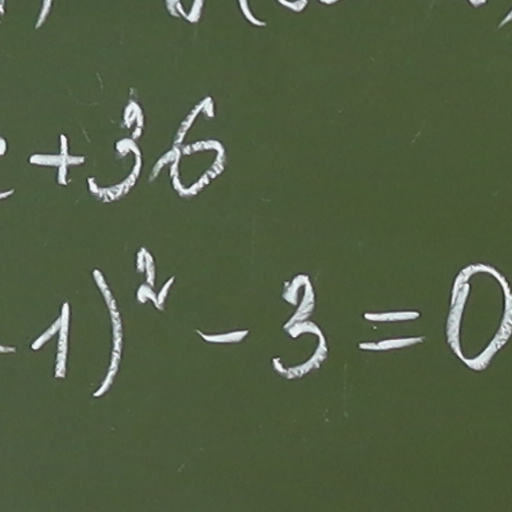 +36
-1)² - 3 = 0